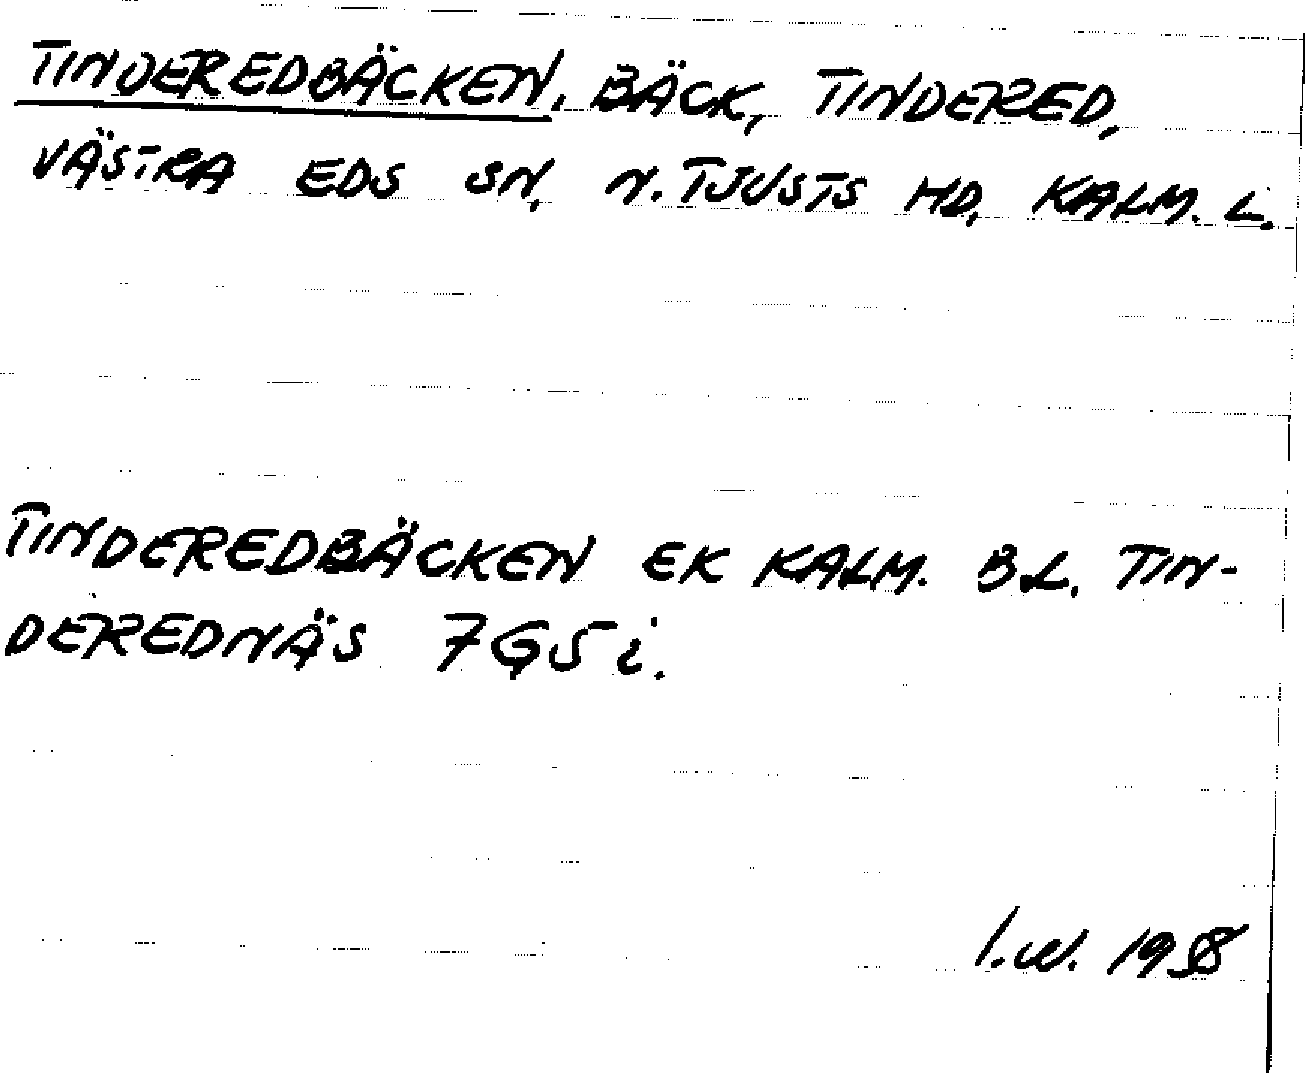 TINDEREDBÄCKEN, BÄCK, TINDERED,
VÄSTRA EDS SN, N. TJUSTS HD, KALM. L.
TINDEREDBÄCKEN EK KALM. BL. TIN-
DEREDNÄS 7G5i.
I.W. 1958